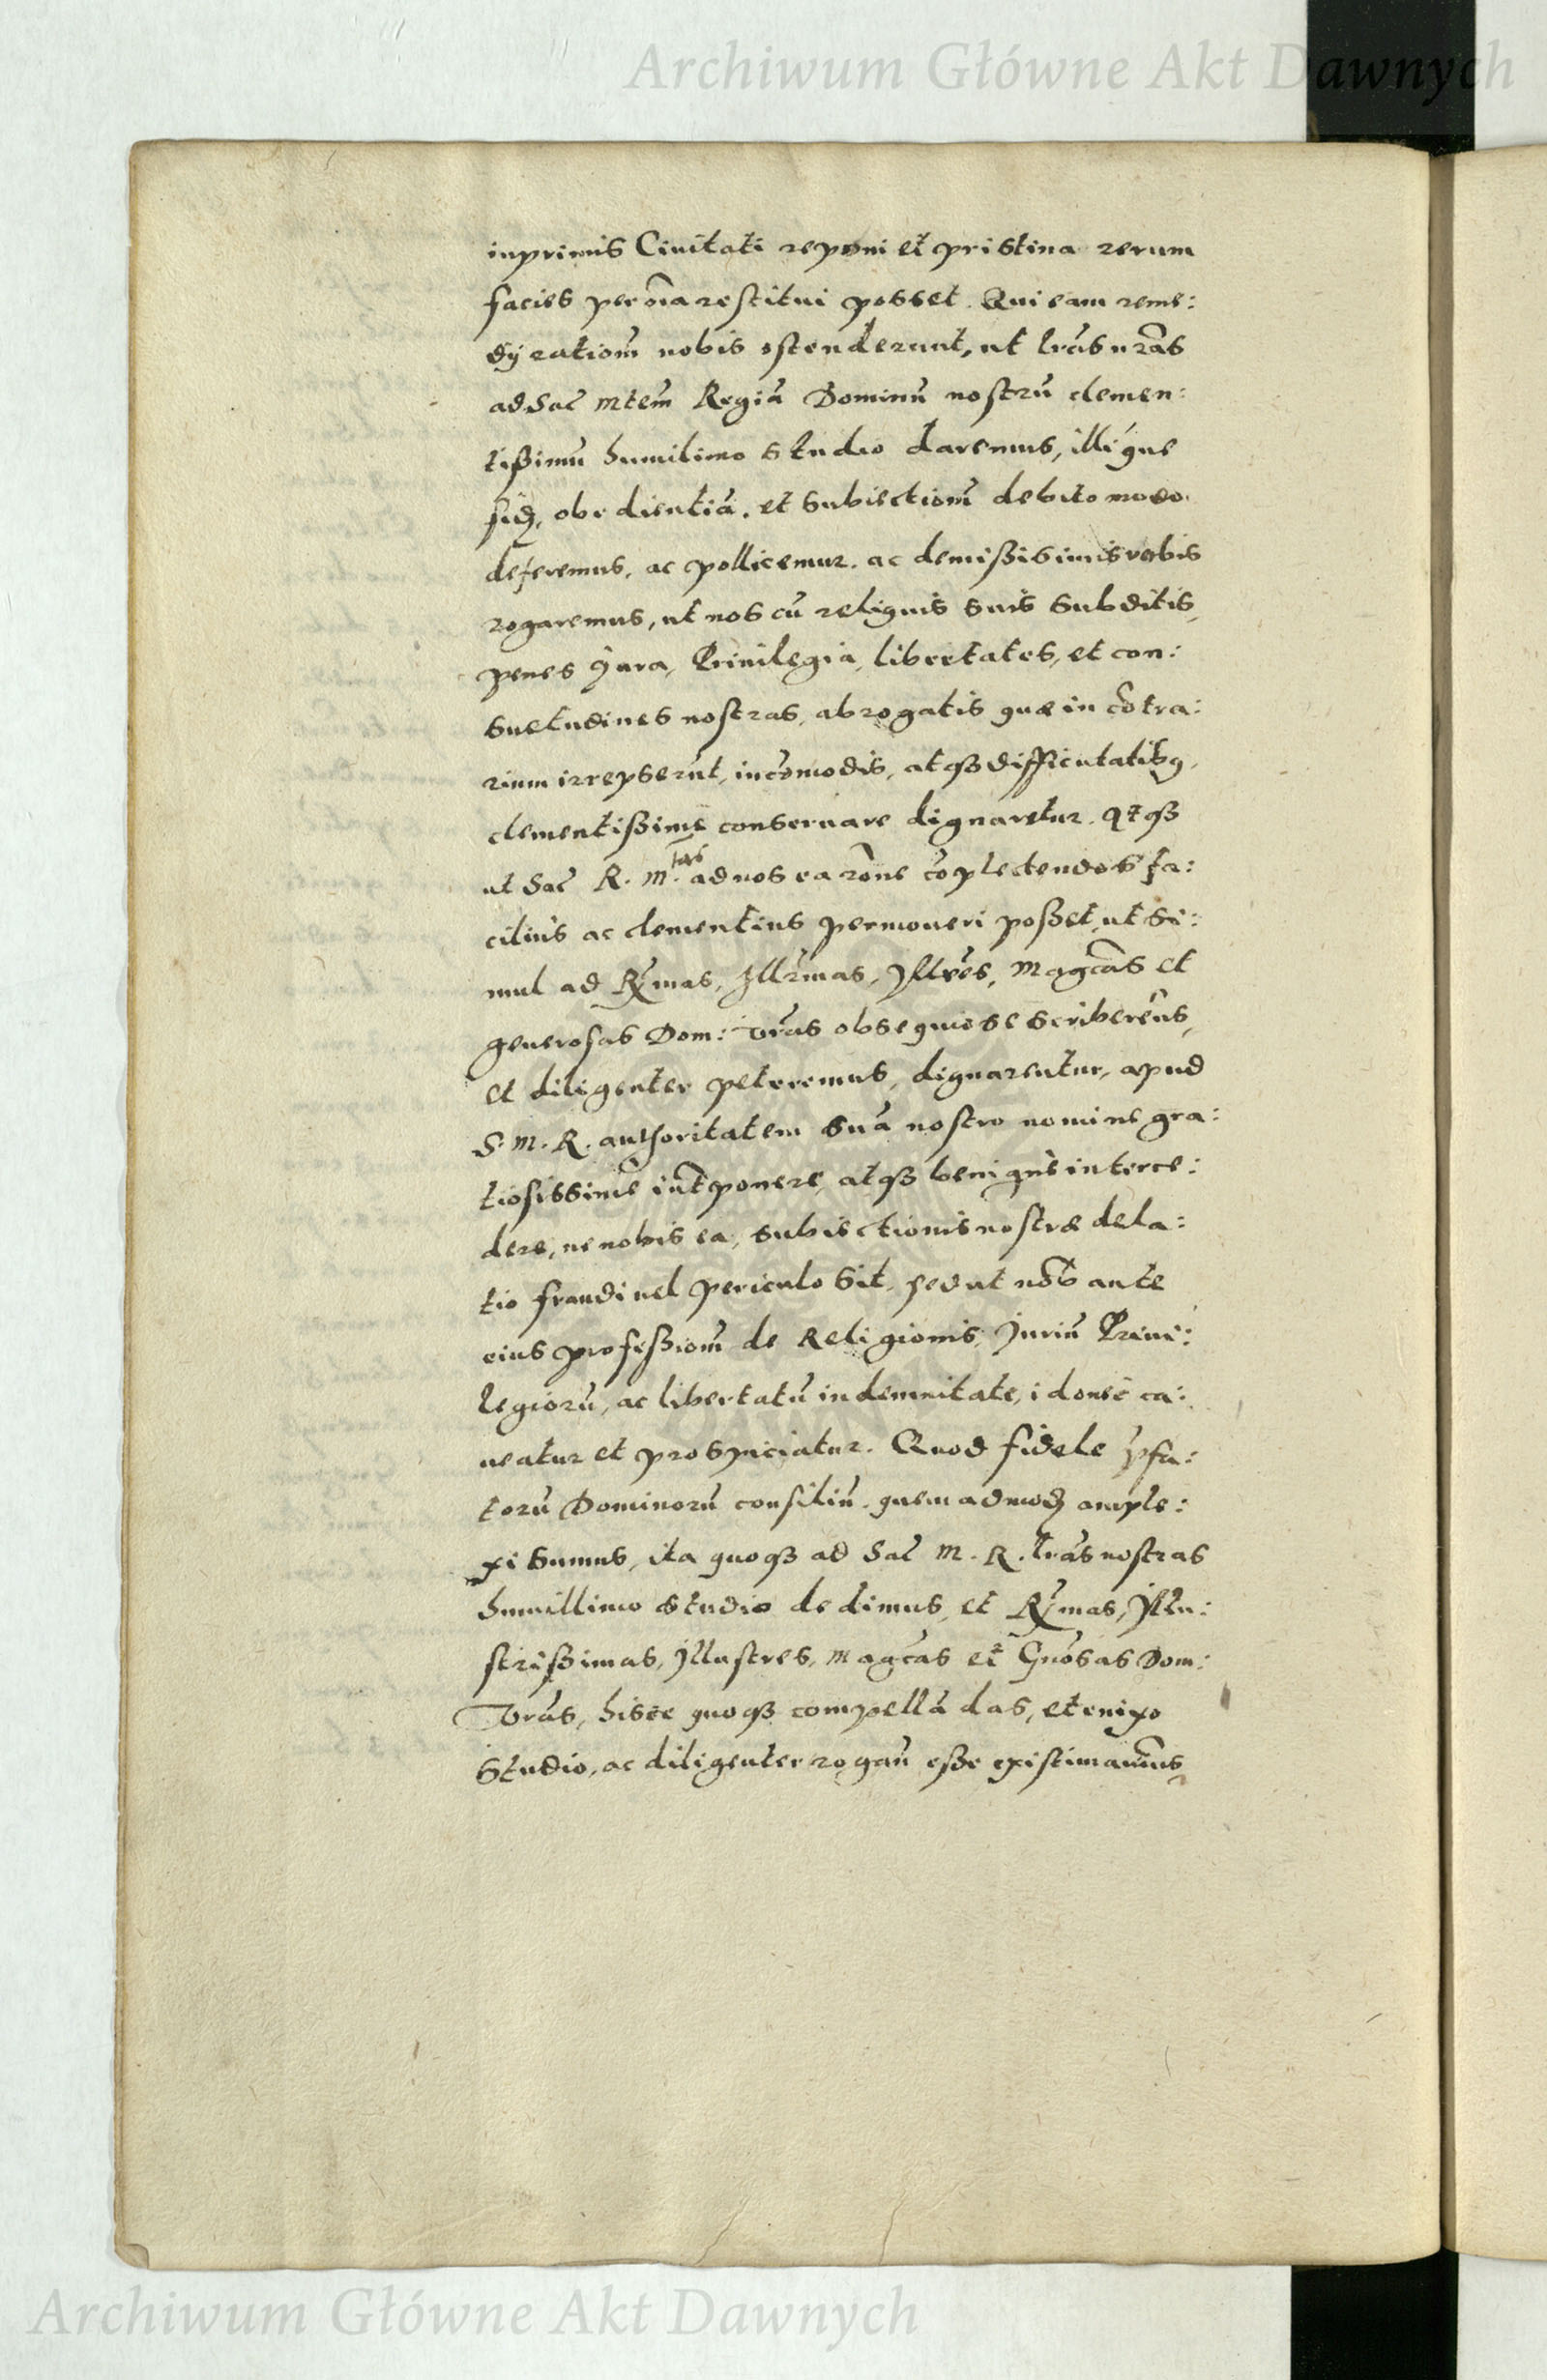 Archiwum Główne Akt Dawnych
inprimis Ciuitati reponi et pristina rerum
facies per oĩa restitui posset. Qui eam reme:
dij rationẽ nobis ostenderunt, ut lrãs nrãs
ad Sac̃ Mtem̃ Regiã Dominũ nostrũ clemen:
tißimũ humilimo studio daremus, illiq́ue
fidẽ, obedientiã, et subiectionẽ debito modo
deferemus, ac pollicemur, ac demißisimis verbis
rogaremus, ut nos cũ reliquis suis subditis,
penes Jura, Priuilegia, libertates, et con:
suetudines nostras, abrogatis quæ in cõtra:
rium irrepserũt, incõmodis, atqꝫ difficultatibꝰ,
clementißime conseruare dignaretur.
ut Sac̃ R. M.tas ad nos ea rõne cõplectendos fa:
cilius ac clementius permoueri poßet, ut si:
mul ad Rẽmas, Illr̃mas, Jllres̃, Magcãs et
generosas Dom: Vrãs obsequiose scriberẽus,
et diligenter peteremus, dignarentur, apud
S. M. R. authoritatem suã nostro nomine gra:
tiosissime int̃ponere, atqꝫ benignè interce:
dere, ne nobis ea, subiectionis nostræ dela:
tio fraudi uel periculo sit, sed ut nõb ante
eius profeßionẽ de Religionis, Juriũ Priui:
legiorũ, ac libertatũ indemnitate, idoneè ca:
ueatur et prospiciatur. Quod fidele p̃fa:
torũ Dominorũ consiliũ, quemadmodũ ample:
xi sumus, ita quoqꝫ ad Sac̃ M. R. lrãs nostras
humillimo studio dedimus, et Rẽmas, Jllu:
strißimas, Jllustres, Magcãs et Gnõsas Dom:
Vrãs, hisce quoqꝫ compellãdas, et enixo
studio, ac diligenter rogañ eße existimauim̃us,
Archiwum Główne Akt Dawnych